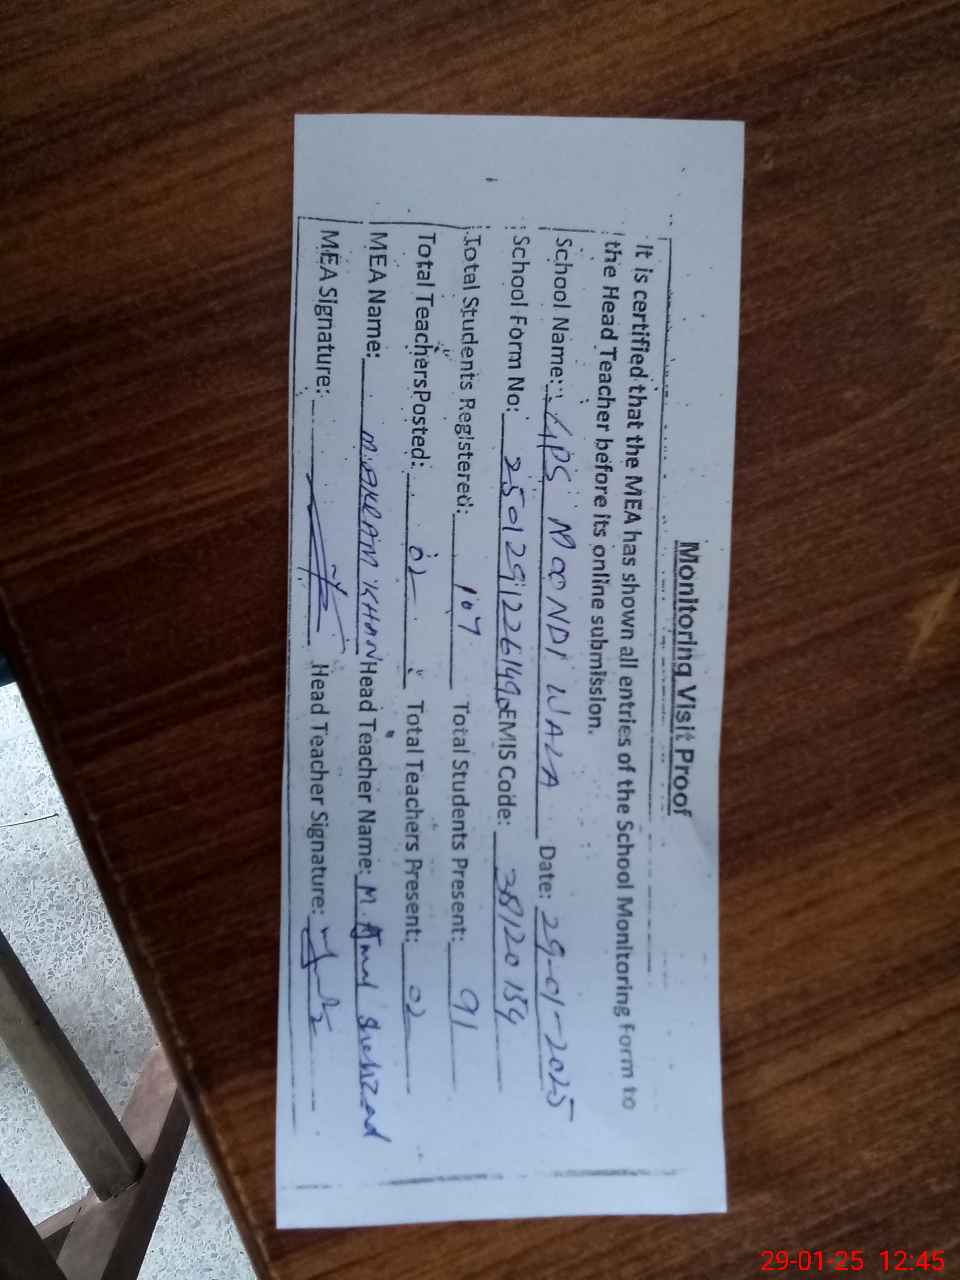 Monitoring Visit Proof
It is certified that the MEA has shown all entries of the School Monitoring Form to
the Head Teacher before its online submission.
School Name: GPS MOONDI WALA Date: 29-01-2025
School Form No: EMIS Code: 38120154
Total Students Registered: 107 Total Students Present: 91
Total Teachers Posted: 02 Total Teachers Present: 02
MEA Name: M. AKRAM KHAN Head Teacher Name: M. Ajmal Shehzad
MEA Signature: Head Teacher Signature:
29-01-25 12:45